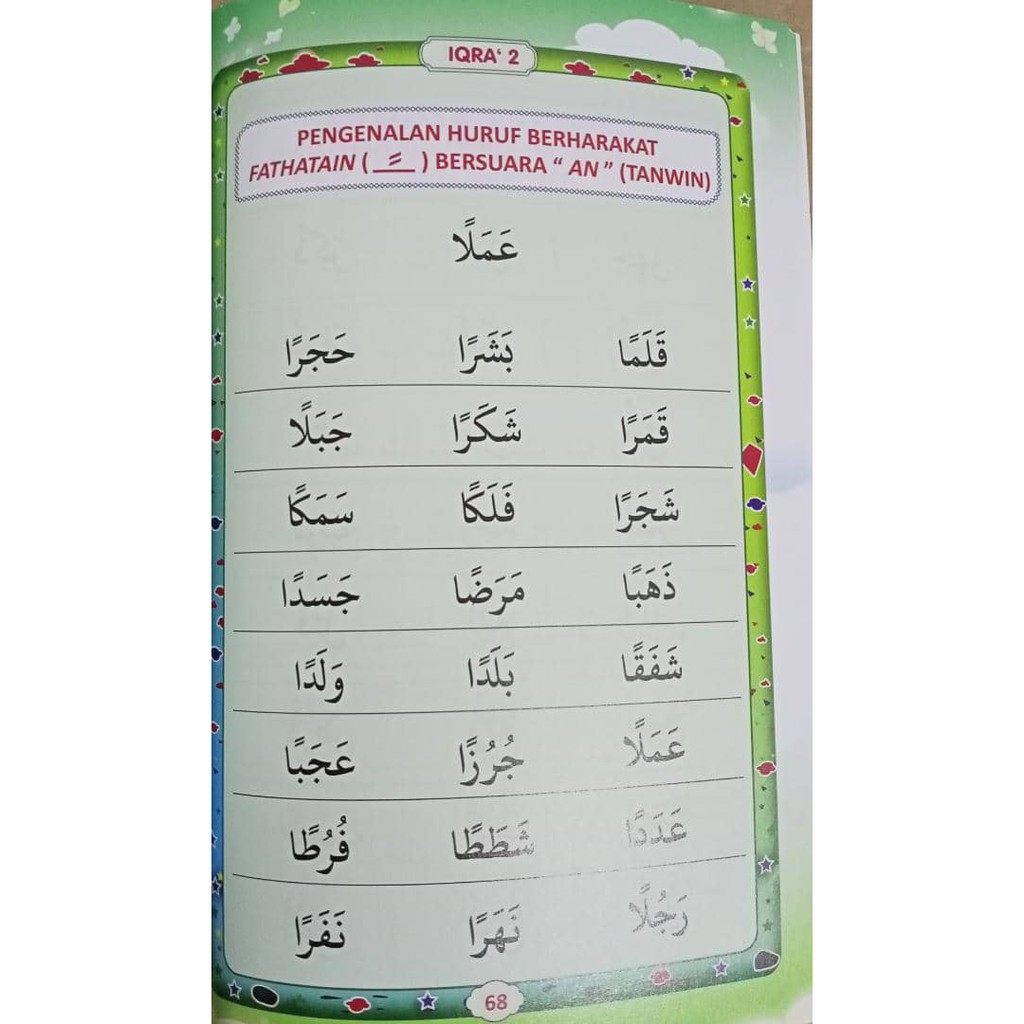 IQRA‘ 2
PENGENALAN HURUF BERHARAKAT
FATHATAIN ( ـً ) BERSUARA “ AN ” (TANWIN)
عَمَلًا
قَلَمًا بَشَرًا حَجَرًا
قَمَرًا شَكَرًا جَبَلًا
شَجَرًا فَلَكًا سَمَكًا
ذَهَبًا مَرَضًا جَسَدًا
شَفَقًا بَلَدًا وَلَدًا
عَمَلًا جُرُزًا عَجَبًا
عَدَدًا شَطَطًا فُرُطًا
رَجُلًا نَهَرًا نَفَرًا
68